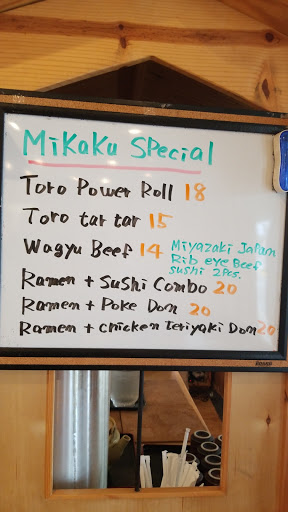 Mikaku Special
Toro Power Roll 18
Toro tar tar 15
Wagyu Beef 14 Miyazaki Japan
Rib eye Beef
sushi 2pcs.
Ramen + Sushi Combo 20
Ramen + Poke Don 20
Ramen + chicken Teriyaki Don 20